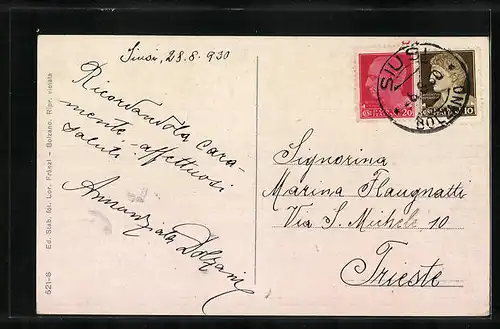 Siusi, 28.8.930
Ricordandola cara-
mente affettuosi
saluti
Annunziata Dolzani
Signorina
Marina Flaugnatti
Via S. Michele 10
Trieste
SIUSI
BOLZANO
20
10
621-8 Ed. Stab. fot. Lor. Fränzl - Bolzano. Ripr. vietata